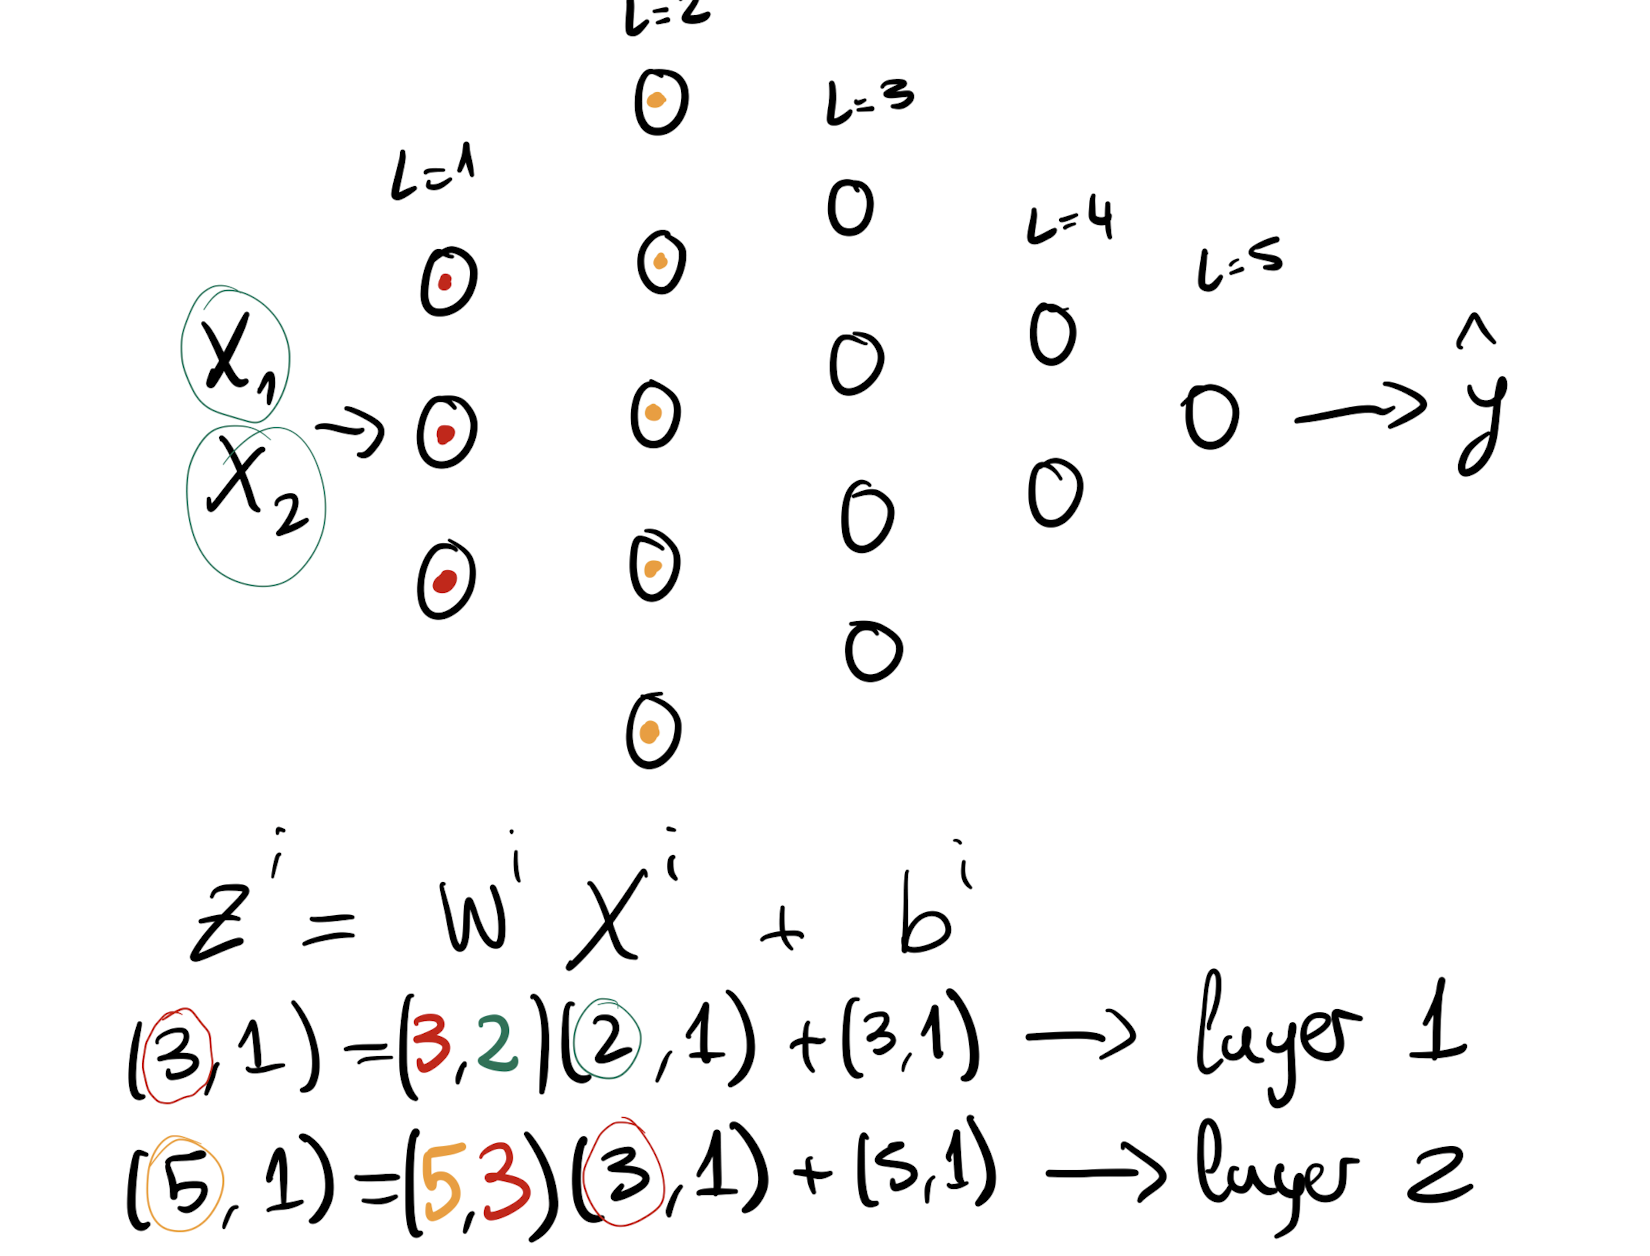 L=2
L=3
L=1
L=4
L=5
X₁
X₂
→
→ ŷ
zⁱ = wⁱ Xⁱ + bⁱ
(3,1) = (3,2)(2,1) + (3,1) → layer 1
(5,1) = (5,3)(3,1) + (5,1) → layer 2